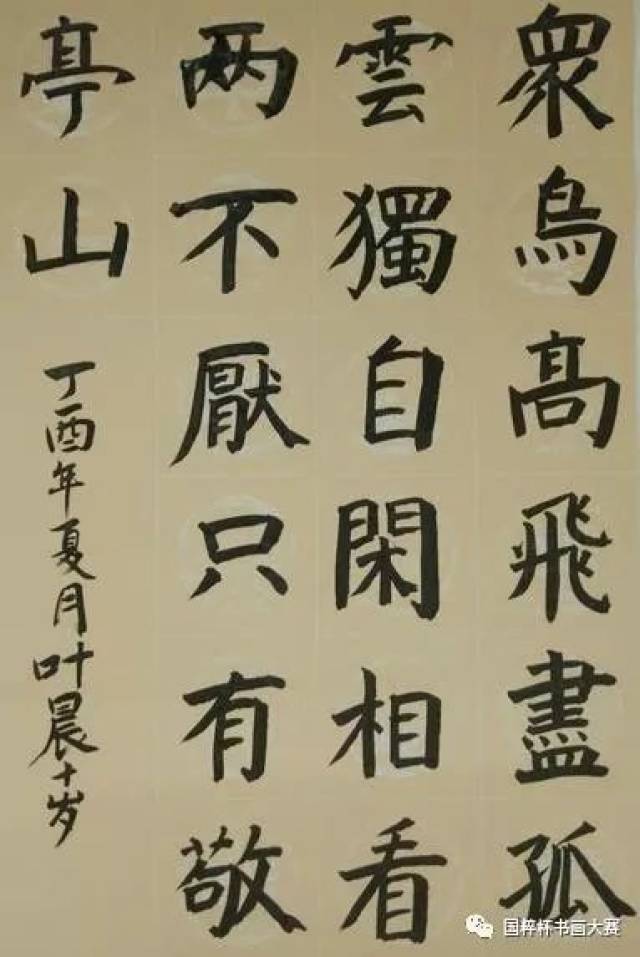 眾鳥高飛盡孤
雲獨自閑相看
两不厭只有敬
亭山
丁酉年夏月叶晨十岁
国粹杯书画大赛